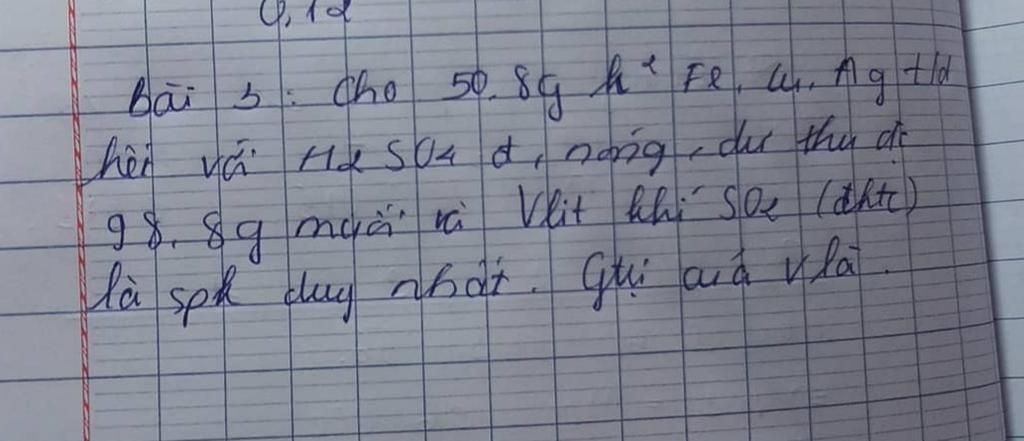 Bài 3: Cho 50.8g h² Fe, Cu, Ag t/d
hết với H2SO4 đ, nóng, dư thu đc
98.8g muối và V lít khí SO2 (đktc)
là spk duy nhất. Giá trị của V là